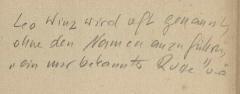 Leo Winz wird oft genannt,
ohne den Namen anzuführen,
"ein mir bekannter